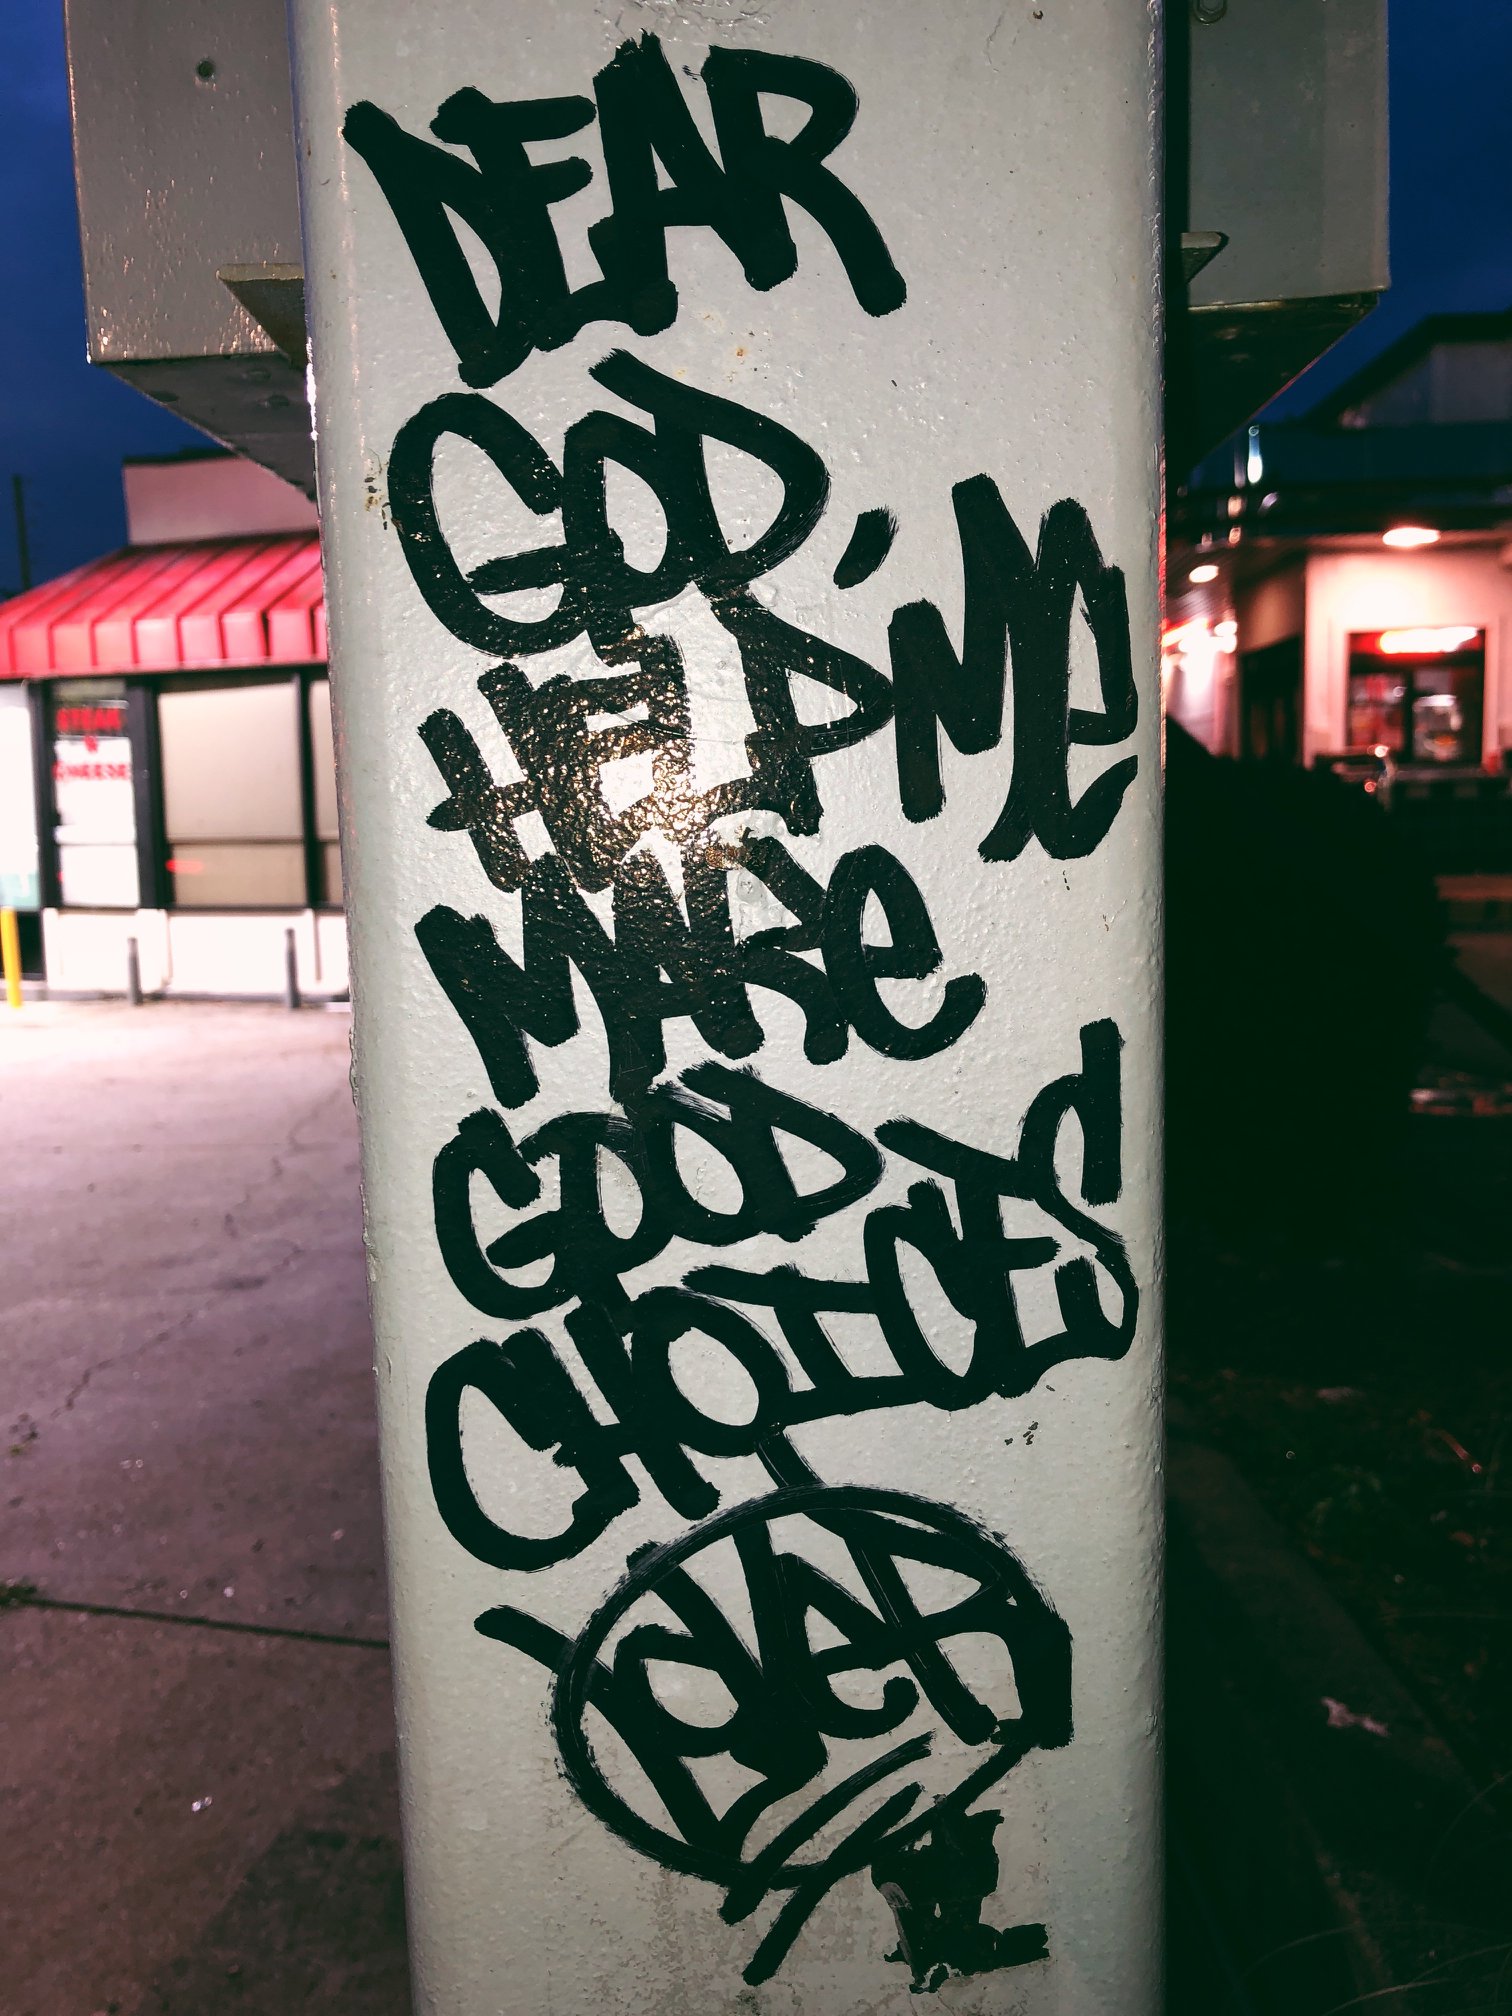 DEAR
GOD,
HELP ME
MAKE
GOOD
CHOICES
STEAK
&
CHEESE